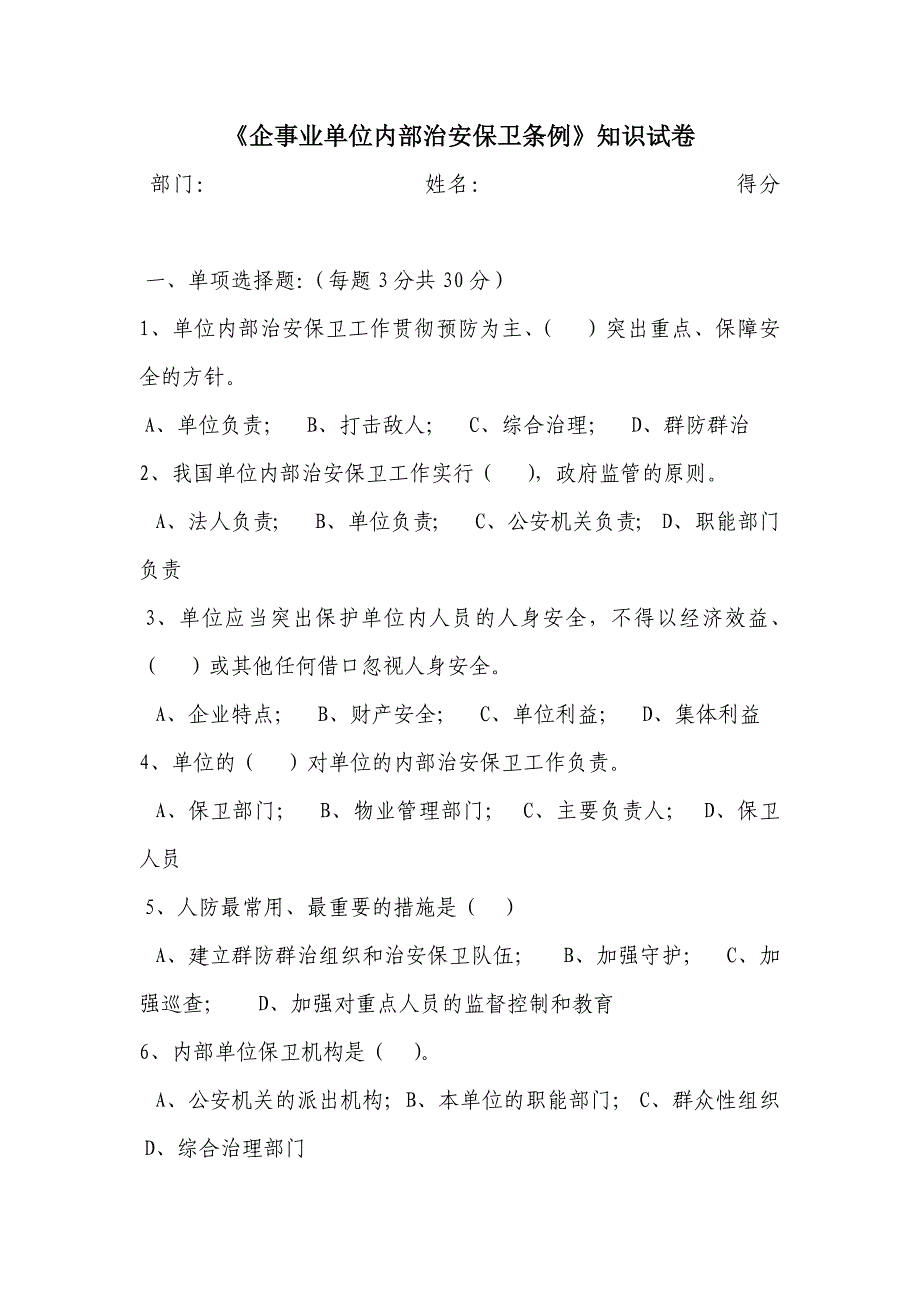 《企事业单位内部治安保卫条例》知识试卷
部门： 姓名： 得分
一、单项选择题：（每题3分共30分）
1、单位内部治安保卫工作贯彻预防为主、（ ）突出重点、保障安
全的方针。
A、单位负责； B、打击敌人； C、综合治理； D、群防群治
2、我国单位内部治安保卫工作实行（ ），政府监管的原则。
A、法人负责； B、单位负责； C、公安机关负责； D、职能部门
负责
3、单位应当突出保护单位内人员的人身安全，不得以经济效益、
（ ）或其他任何借口忽视人身安全。
A、企业特点； B、财产安全； C、单位利益； D、集体利益
4、单位的（ ）对单位的内部治安保卫工作负责。
A、保卫部门； B、物业管理部门； C、主要负责人； D、保卫
人员
5、人防最常用、最重要的措施是（ ）
A、建立群防群治组织和治安保卫队伍； B、加强守护； C、加
强巡查； D、加强对重点人员的监督控制和教育
6、内部单位保卫机构是（ ）。
A、公安机关的派出机构；B、本单位的职能部门； C、群众性组织
D、综合治理部门